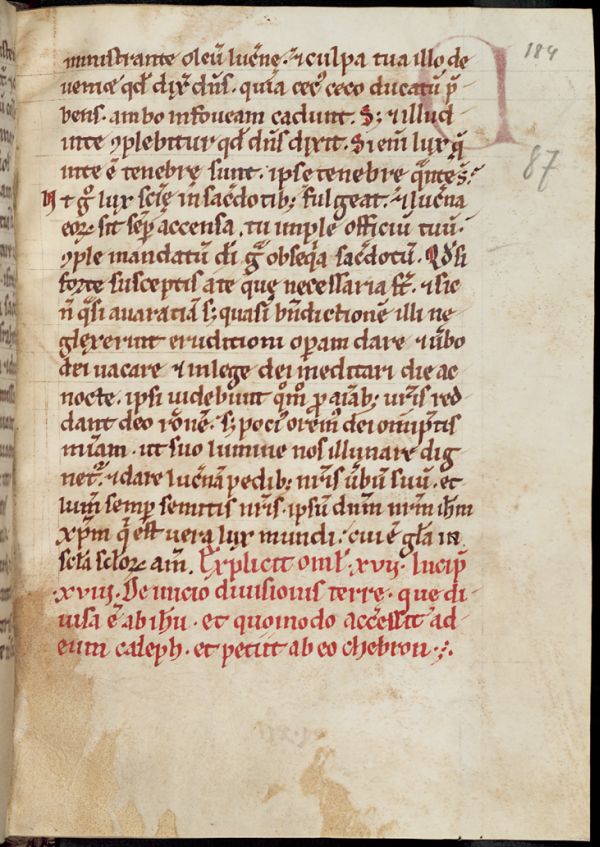 ministrante oleū lucn̄e. ⁊ culpa tua illo de
ueniat qd̄ dix̄ dn̄s. quia cec' ceco ducatū p̄
bens. ambo in foueam cadunt. S; ⁊ illud
in te ꝯplebitur qd̄ dn̄s dixit. Si enī lux q̄
in te ē tenebre sunt. ipse tenebre q̄nte s̄:
Ut gͦ lux scīę in sac̄dotib; fulgeat. ⁊ lucn̄a
eoꝝ sit sēp accensa, tu imple officiū tuū.
ꝯple mandatū dī gͣ obseq̄a sac̄dotū. Qd̄ si
forte susceptis a te quę necessaria st̄. ⁊ sic
n̄ q̄si auaratiā s; quasi bn̄dictionē illi ne
glexerint eruditioni operam dare ⁊ ūbo
dei uacare ⁊ in lege dei meditari die ac
nocte. ipsi uidebunt qm̄ p aīab; ur̄is red
dant deo rōnē. s; poci' orem' dei omīptis
mīam. ut suo lumine nos illuīare dig
net'. ⁊ dare lucn̄a pedib; nr̄is ūbū suū. et
lum̄ semp semitis nr̄is. ipsū dnm̄ nrm̄ ihm̄
xp̄m q̄ est uera lux mundi. cui ē gl̄a in
scl̄a scl̄oꝝ am̄. Explicit oml̄. xvii. Incip̄
.xviii. De inicio diuisionis terre. que di
uisa ē ab ihū. et quomodo accessit ad
eum caleph. et petiit ab eo chebron.
184
87